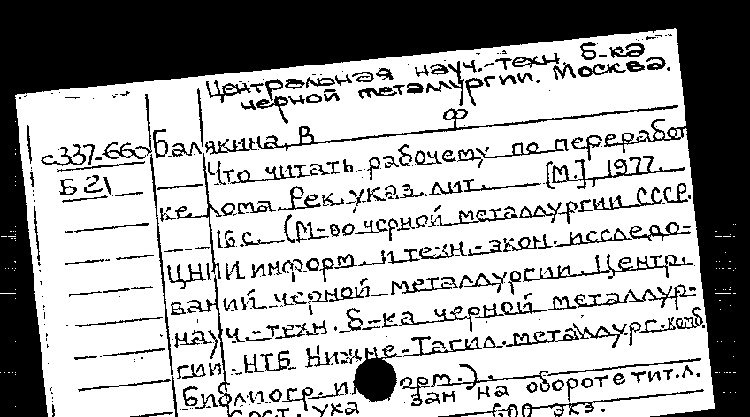 Центральная науч.-техн. б-ка
черной металлургии. Москва.
ф
с337-660 Балякина, В
Б21 Что читать рабочему по переработ
ке лома. Рек. указ. лит. [М.], 1977.
16 с. (М-во черной металлургии СССР.
ЦНИИ информ. и техн.-экон. исследо=
ваний черной металлургии. Центр.
науч.-техн. б-ка черной металлур=
гии. НТБ Нижне-Тагил. металлург. комб.
Библиогр. информ.).
Сост. ука зан на обороте тит. л.
600 экз.